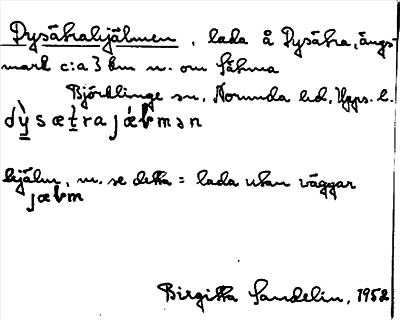 Dysätrahjälmen, lada å Dysätra, ängs-
mark c:a 3 km n. om Sätuna
Björklinge sn, Norunda hd, Upps. l.
hjälm, m. se detta = lada utan väggar
Birgitta Sandelin, 1952